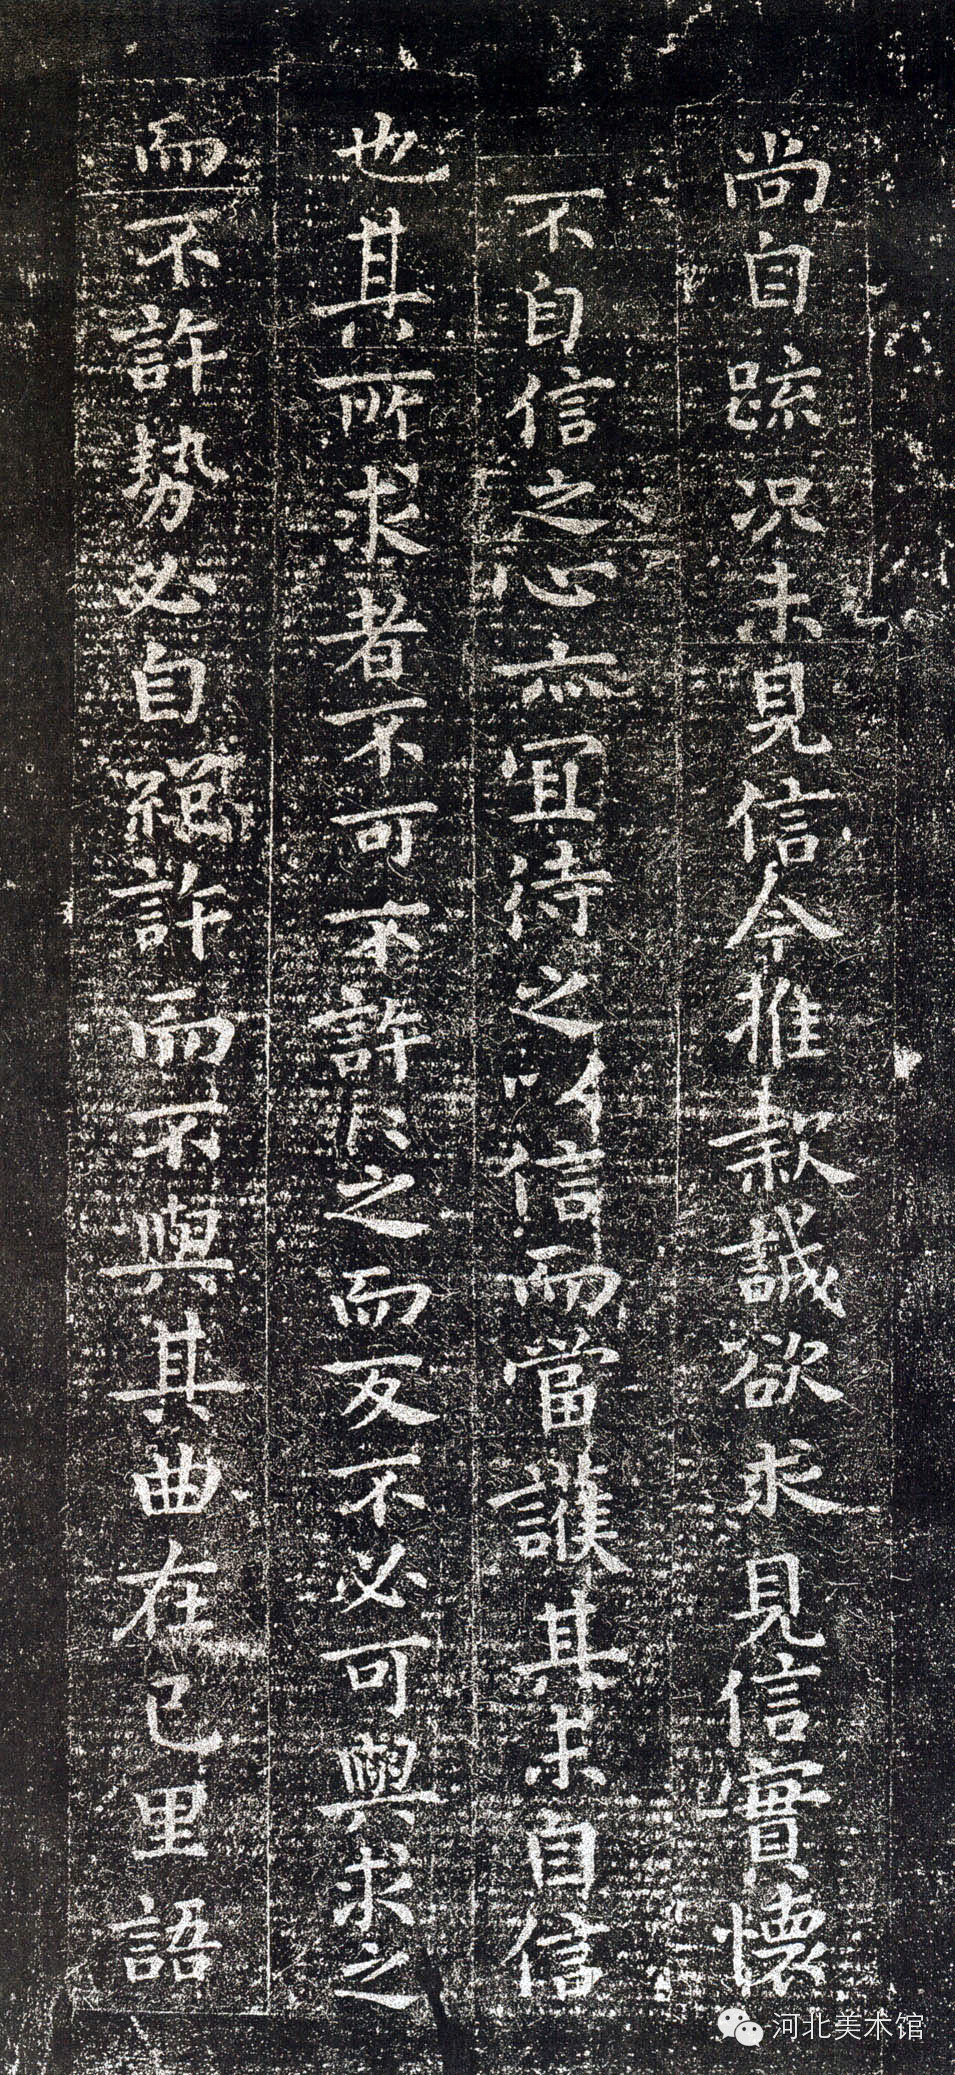 尚自疏況未見信今推款誠欲求見信實懷
不自信之心亦宜待之以信而當護其未自信
也其所求者不可不許許之而反不必可與求之
而不許勢必自絕許而不與其曲在己里語
河北美术馆